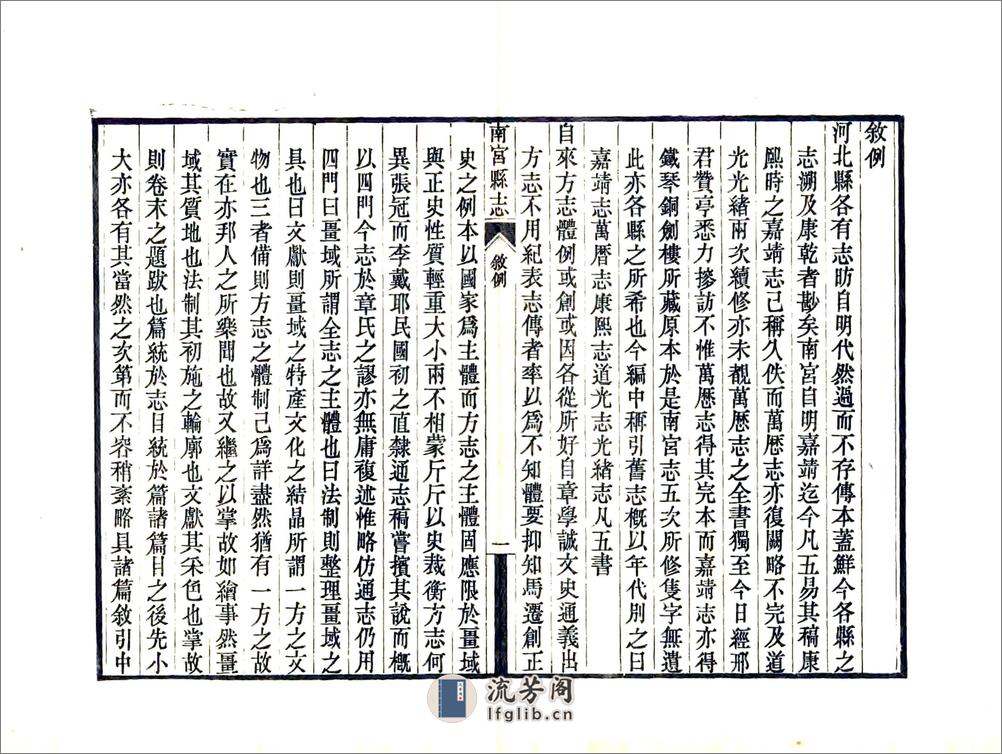 敘例
河北縣各有志昉自明代然過而不存傳本蓋鮮今各縣之
志溯及康乾者尠矣南宮自明嘉靖迄今凡五易其稿康
熙時之嘉靖志已稱久佚而萬曆志亦復闕略不完及道
光光緒兩次續修亦未覩萬曆志之全書獨至今日經邢
君贊亭悉力摻訪不惟萬曆志得其完本而嘉靖志亦得
鐵琴銅劍樓所藏原本於是南宮志五次所修隻字無遺
此亦各縣之所希也今編中稱引舊志槪以年代別之曰
嘉靖志萬曆志康熙志道光志光緒志凡五書
自來方志體例或創或因各從所好自章學誠文史通義出
方志不用紀表志傳者率以爲不知體要抑知馬遷創正
南宮縣志
敘例
一
史之例本以國家爲主體而方志之主體固應限於畺域
與正史性質輕重大小兩不相蒙斤斤以史裁衡方志何
異張冠而李戴耶民國初之直隸通志稿嘗擯其說而槪
以四門今志於章氏之謬亦無庸複述惟略仿通志仍用
四門曰畺域所謂全志之主體也曰法制則整理畺域之
具也曰文獻則畺域之特產文化之結晶所謂一方之文
物也三者備則方志之體制已爲詳盡然猶有一方之故
實在亦邦人之所樂聞也故又繼之以掌故如繪事然畺
域其質地也法制其初施之輪廓也文獻其采色也掌故
則卷末之題跋也篇統於志目統於篇諸篇目之後先小
大亦各有其當然之次第而不容稍紊略具諸篇敘引中
流芳阁
lfglib.cn